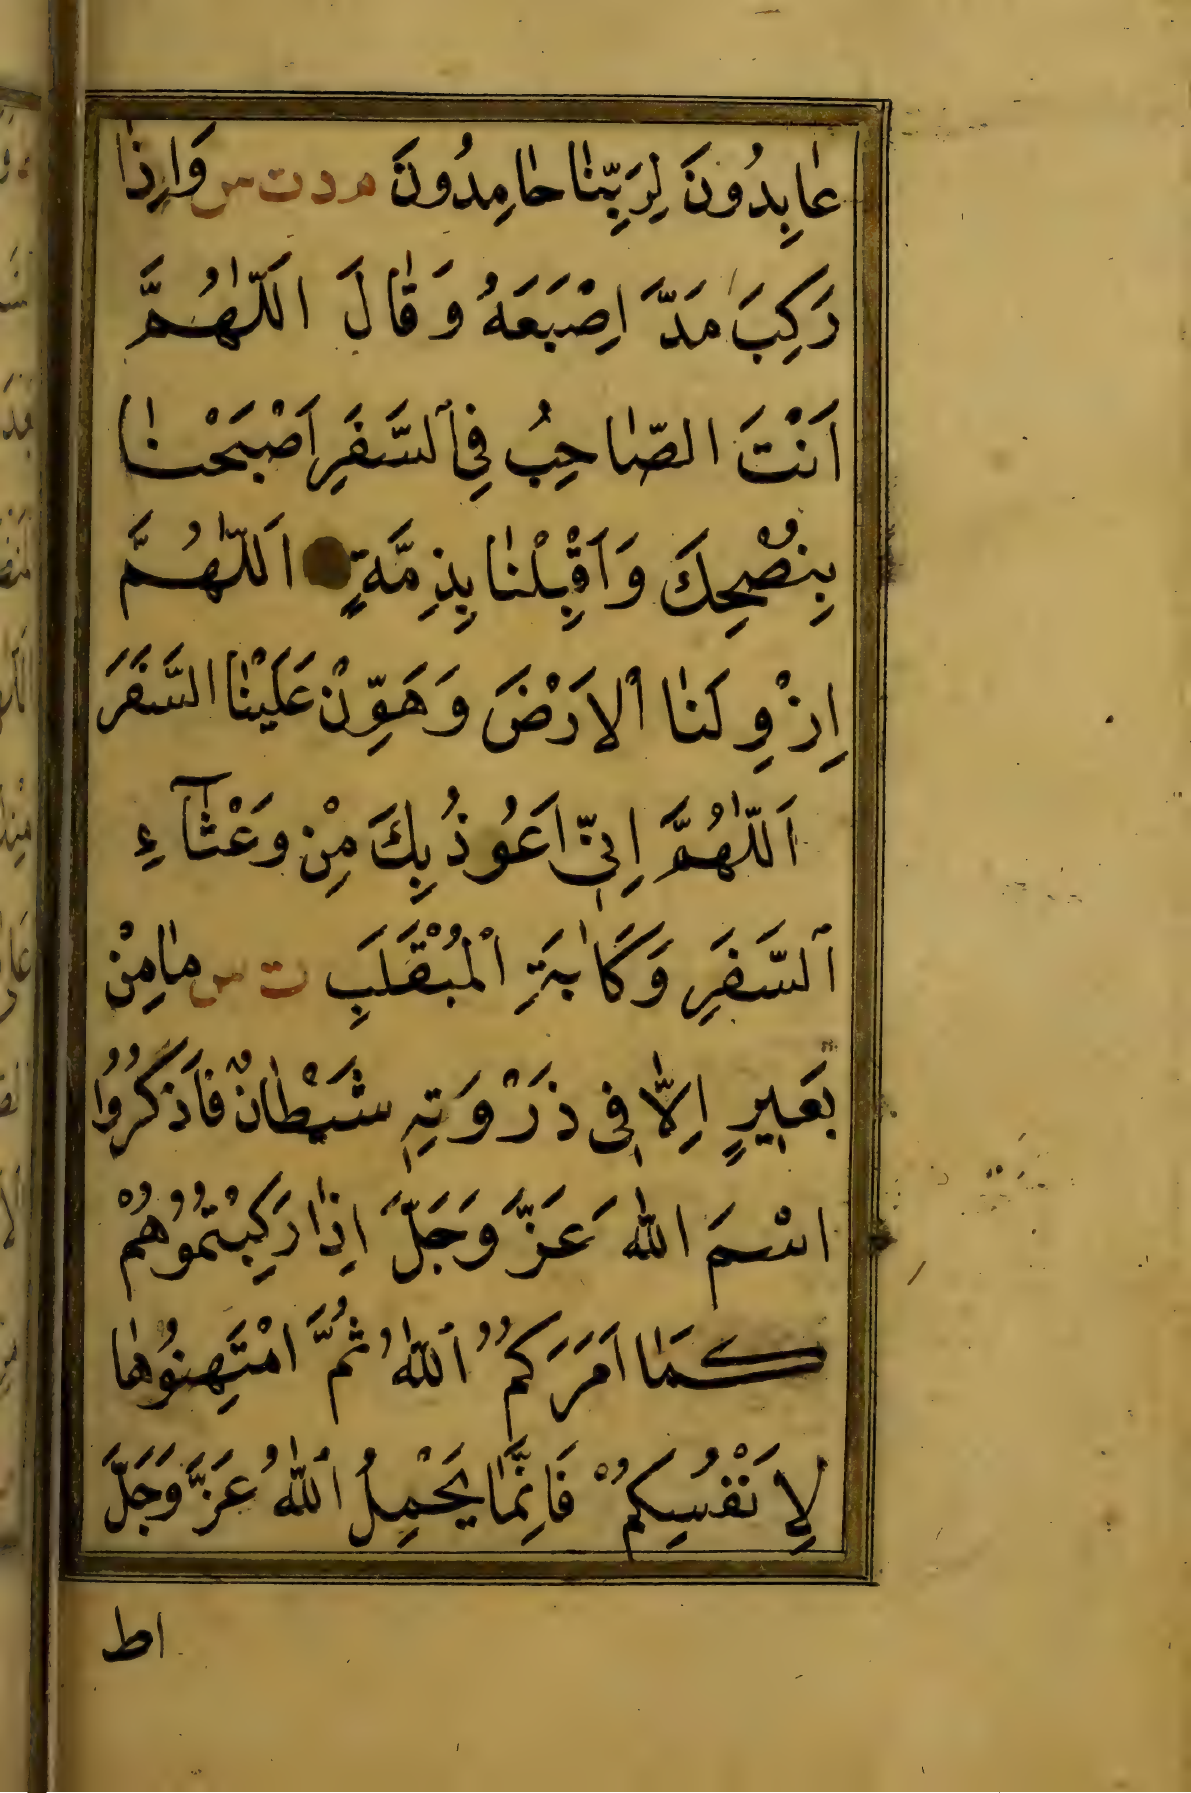 عَابِدُونَ لِرَبِّنَا حَامِدُونَ م د ت س وَاِذَا
رَكِبَ مَدَّ اِصْبَعَهُ وَقَالَ اَللّٰهُمَّ
اَنْتَ الصَّاحِبُ فِي ٱلسَّفَرِ اَصْبَحْنَا
بِنُصْحِكَ وَاَقْبِلْنَا بِذِمَّةٍ اَللّٰهُمَّ
اِزْوِ لَنَا ٱلْاَرْضَ وَهَوِّنْ عَلَيْنَا السَّفَرَ
اَللّٰهُمَّ اِنِّي اَعُوذُ بِكَ مِنْ وَعْثَآءِ
ٱلسَّفَرِ وَكَاٰبَةِ ٱلْمُنْقَلَبِ ت س مَا مِنْ
بَعِيرٍ اِلَّا فِي ذَرْوَتِهِ شَيْطَانٌ فَاَذْكُرُوا
اسْمَ اللّٰهِ عَزَّ وَجَلَّ اِذَا رَكِبْتُمُوهُمْ
كَمَا اَمَرَكُمُ ٱللّٰهُ ثُمَّ امْتَهِنُوهَا
لِاَنْفُسِكُمْ فَاِنَّمَا يَحْمِلُ ٱللّٰهُ عَزَّ وَجَلَّ
اط